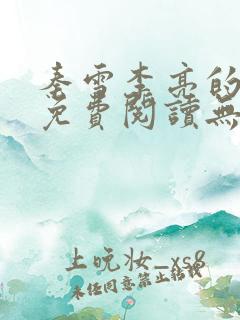 秦雪李亮的
免費閱讀無
上晚妆_xs8
未经同意禁止转载